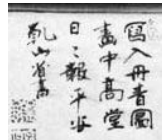 寫入丹青圖
畫中高堂
日〻報平安
乾山省